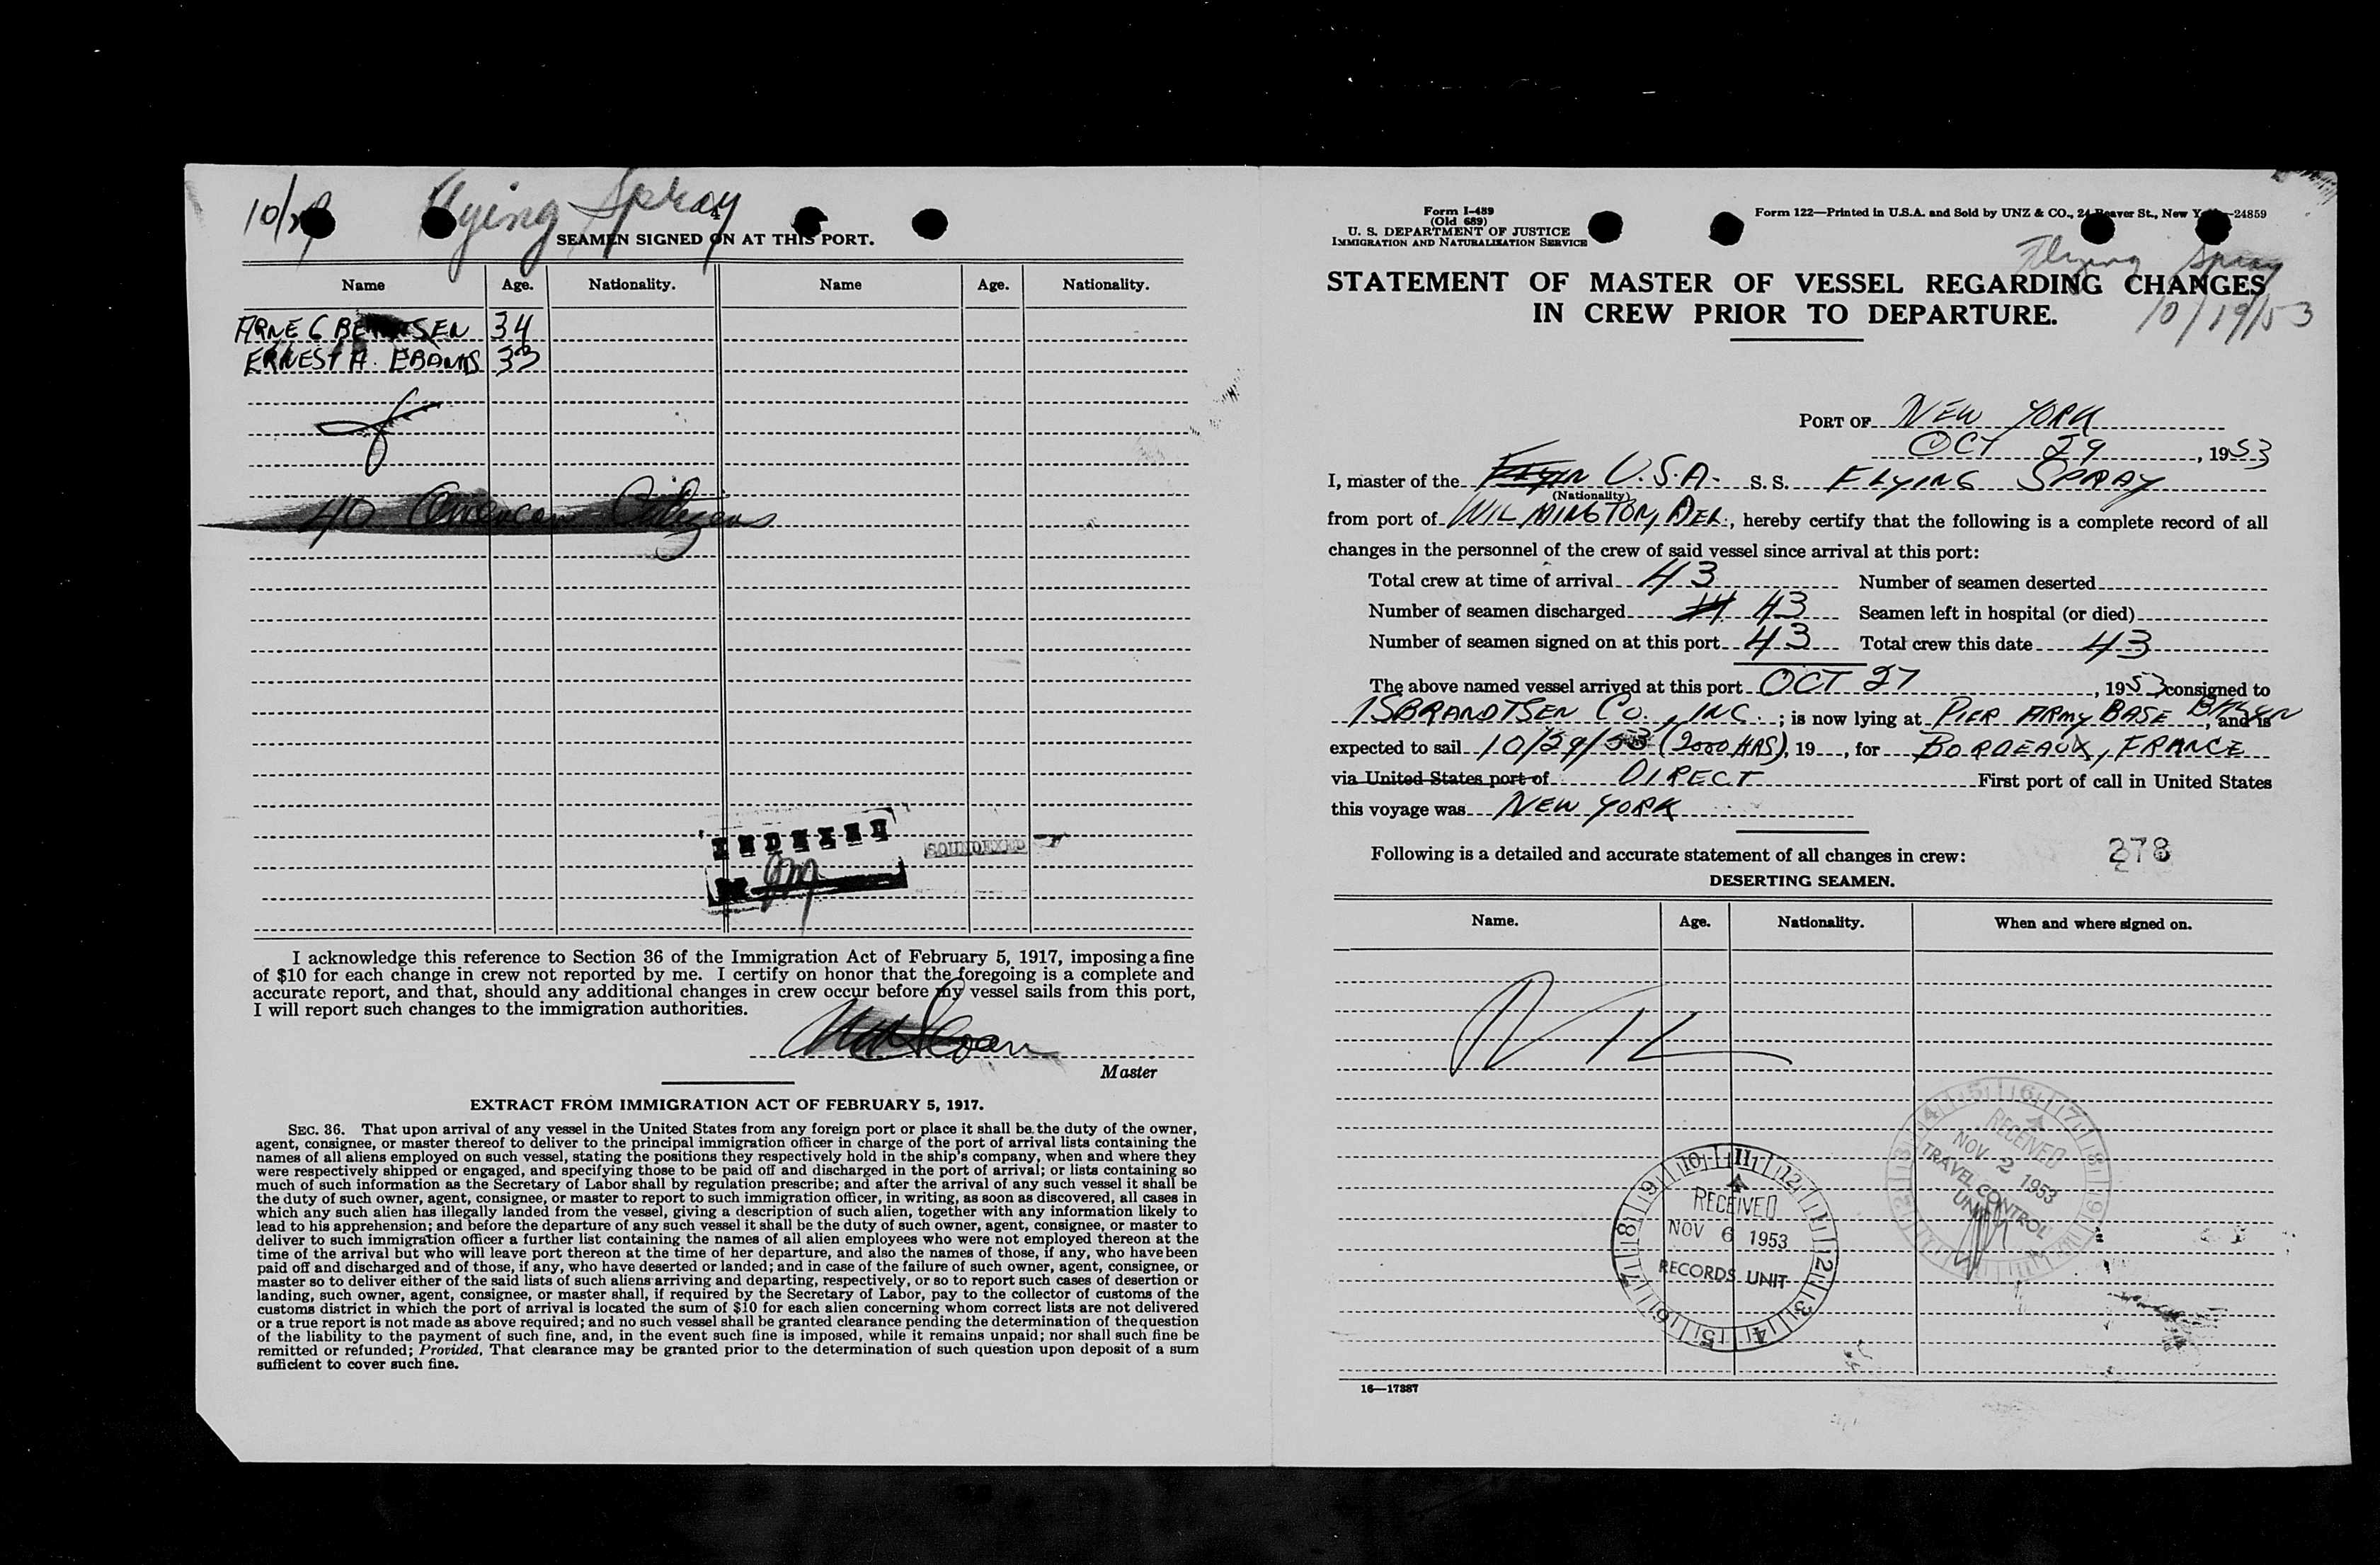 10/29 Flying Spray
4
SEAMEN SIGNED ON AT THIS PORT.
Name Age. Nationality. Name Age. Nationality.
ARNE C 34
ERNEST A. EBANKS 33
40 American Citizens
INDEXED
SOUNDEXED
I acknowledge this reference to Section 36 of the Immigration Act of February 5, 1917, imposing a fine
of $10 for each change in crew not reported by me. I certify on honor that the foregoing is a complete and
accurate report, and that, should any additional changes in crew occur before my vessel sails from this port,
I will report such changes to the immigration authorities.
Sloan
Master
EXTRACT FROM IMMIGRATION ACT OF FEBRUARY 5, 1917.
SEC. 36. That upon arrival of any vessel in the United States from any foreign port or place it shall be the duty of the owner,
agent, consignee, or master thereof to deliver to the principal immigration officer in charge of the port of arrival lists containing the
names of all aliens employed on such vessel, stating the positions they respectively hold in the ship's company, when and where they
were respectively shipped or engaged, and specifying those to be paid off and discharged in the port of arrival; or lists containing so
much of such information as the Secretary of Labor shall by regulation prescribe; and after the arrival of any such vessel it shall be
the duty of such owner, agent, consignee, or master to report to such immigration officer, in writing, as soon as discovered, all cases in
which any such alien has illegally landed from the vessel, giving a description of such alien, together with any information likely to
lead to his apprehension; and before the departure of any such vessel it shall be the duty of such owner, agent, consignee, or master to
deliver to such immigration officer a further list containing the names of all alien employees who were not employed thereon at the
time of the arrival but who will leave port thereon at the time of her departure, and also the names of those, if any, who have been
paid off and discharged and of those, if any, who have deserted or landed; and in case of the failure of such owner, agent, consignee, or
master so to deliver either of the said lists of such aliens arriving and departing, respectively, or so to report such cases of desertion or
landing, such owner, agent, consignee, or master shall, if required by the Secretary of Labor, pay to the collector of customs of the
customs district in which the port of arrival is located the sum of $10 for each alien concerning whom correct lists are not delivered
or a true report is not made as above required; and no such vessel shall be granted clearance pending the determination of the question
of the liability to the payment of such fine, and, in the event such fine is imposed, while it remains unpaid; nor shall such fine be
remitted or refunded; Provided, That clearance may be granted prior to the determination of such question upon deposit of a sum
sufficient to cover such fine.
Form I-489
(Old 689)
U. S. DEPARTMENT OF JUSTICE
IMMIGRATION AND NATURALIZATION SERVICE
Form 122—Printed in U.S.A. and Sold by UNZ & CO., 24 Beaver St., New Y—24859
Flying Spray
10/19/53
STATEMENT OF MASTER OF VESSEL REGARDING CHANGES
IN CREW PRIOR TO DEPARTURE.
PORT OF NEW YORK
OCT 29, 1953
I, master of the U.S.A. S. S. FLYING SPRAY
(Nationality)
from port of WILMINGTON, DEL., hereby certify that the following is a complete record of all
changes in the personnel of the crew of said vessel since arrival at this port:
Total crew at time of arrival 43 Number of seamen deserted
Number of seamen discharged 43 Seamen left in hospital (or died)
Number of seamen signed on at this port 43 Total crew this date 43
The above named vessel arrived at this port OCT 27, 1953 consigned to
ISBRANDTSEN CO., INC.; is now lying at PIER ARMY BASE BKLYN, and is
expected to sail 10/29/53 (2000 HRS), 19 , for BORDEAUX, FRANCE
via United States port of DIRECT First port of call in United States
this voyage was NEW YORK
Following is a detailed and accurate statement of all changes in crew: 278
DESERTING SEAMEN.
Name. Age. Nationality. When and where signed on.
NIL
RECEIVED
NOV 2 1953
TRAVEL CONTROL
UNIT
RECEIVED
NOV 6 1953
RECORDS UNIT
16—17387